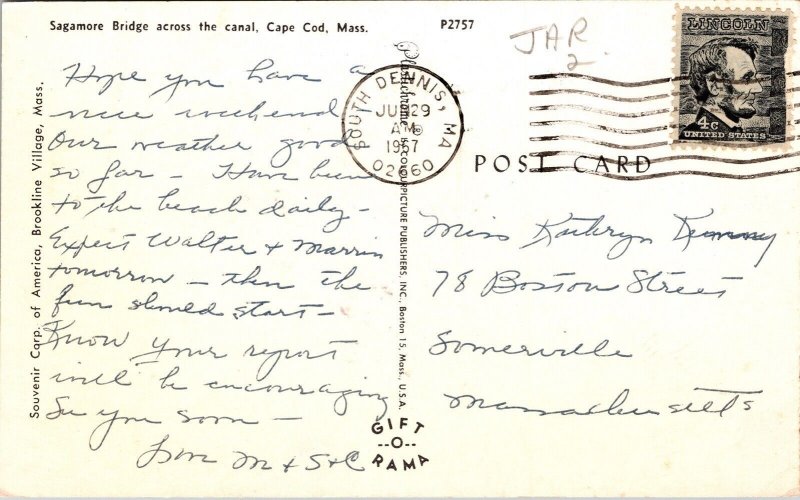 Sagamore Bridge across the canal, Cape Cod, Mass.
P2757
JAR
2
Hope you have a
nice weekend -
Our weather good
so far - Have been
to the beach daily -
Expect Walter &
tomorrow - then the
fun should start -
Know your report
will be encouraging
See you soon -
Love M & S & C
Souvenir Corp. of America, Brookline Village, Mass.
Plastichrome ® by COLOURPICTURE PUBLISHERS, INC., Boston 15, Mass., U.S.A.
GIFT
--O--
RAMA
SOUTH DENNIS, MA
29
AM
1967
02660
LINCOLN
4c
UNITED STATES
POST CARD
Miss Kathryn
78 Boston Street
Somerville
Massachusetts